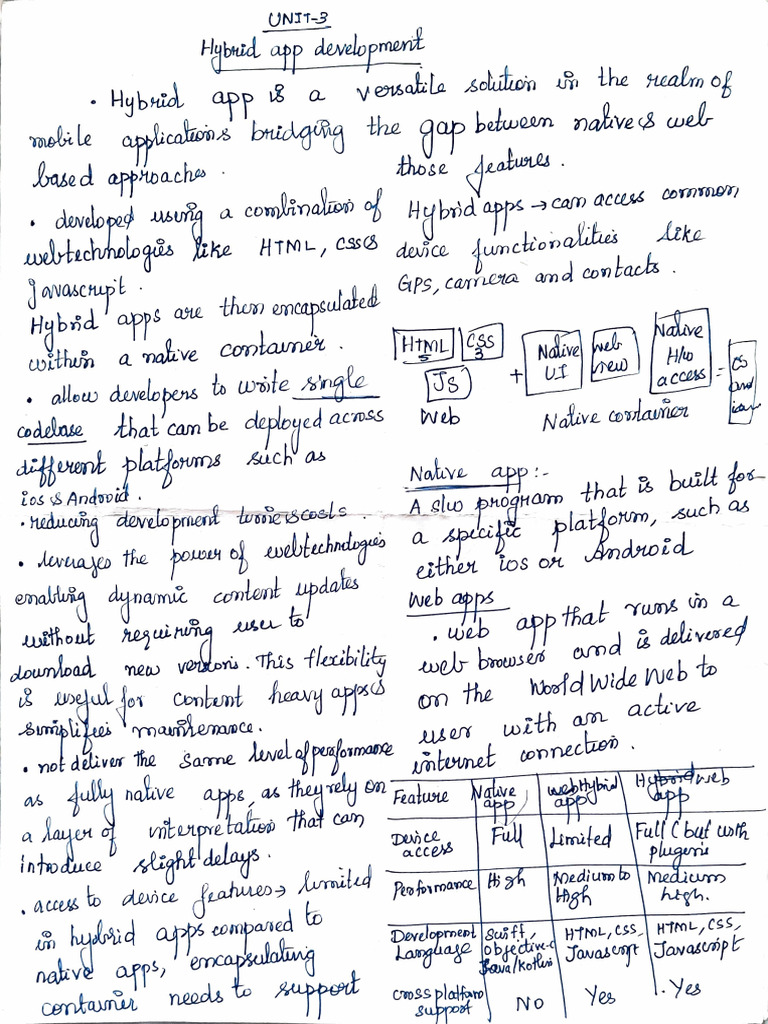 UNIT-3
Hybrid app development
• Hybrid app is a versatile solution in the realm of
mobile applications bridging the gap between native & web
based approaches.
• developed using a combination of
webtechnologies like HTML, CSS &
javascript.
Hybrid apps are then encapsulated
within a native container.
• allow developers to write single
codebase that can be deployed across
different platforms such as
ios & Android.
• reducing development time & costs.
• leverages the power of webtechnologies
enabling dynamic content updates
without requiring user to
download new versions. This flexibility
is useful for content heavy apps &
simplifies maintenance.
• not deliver the same level of performance
as fully native apps, as they rely on
a layer of interpretation that can
introduce slight delays.
• access to device features → limited
in hybrid apps compared to
native apps, encapsulating
container needs to support
those features.
Hybrid apps → can access common
device functionalities like
GPS, camera and contacts.
HTML 5 CSS 3
JS
Web
+
Native UI
web
Native H/w access
=
Native container
Native app :-
A s/w program that is built for
a specific platform, such as
either ios or Android
Web apps
• web app that runs in a
web browser and is delivered
on the World Wide Web to
user with an active
internet connection.
Feature | Native app | web Hybrid app | Hybrid web app
Device access | Full | Limited | Full (but with plugins
Performance | High | Medium to High | Medium high.
Development Language | Swift, Objective-C Java/Kotlin | HTML, CSS, Javascript | HTML, CSS, Javascript
Cross platform support | No | Yes | Yes